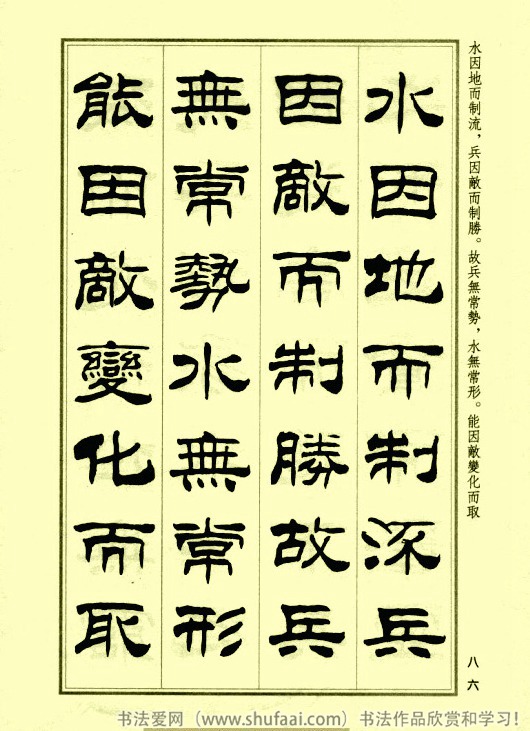 水因地而制流兵
因敵而制勝故兵
無常勢水無常形
能因敵變化而取
水因地而制流，兵因敵而制勝。故兵無常勢，水無常形。能因敵變化而取
八六
书法爱网（www.shufaai.com）书法作品欣赏和学习！